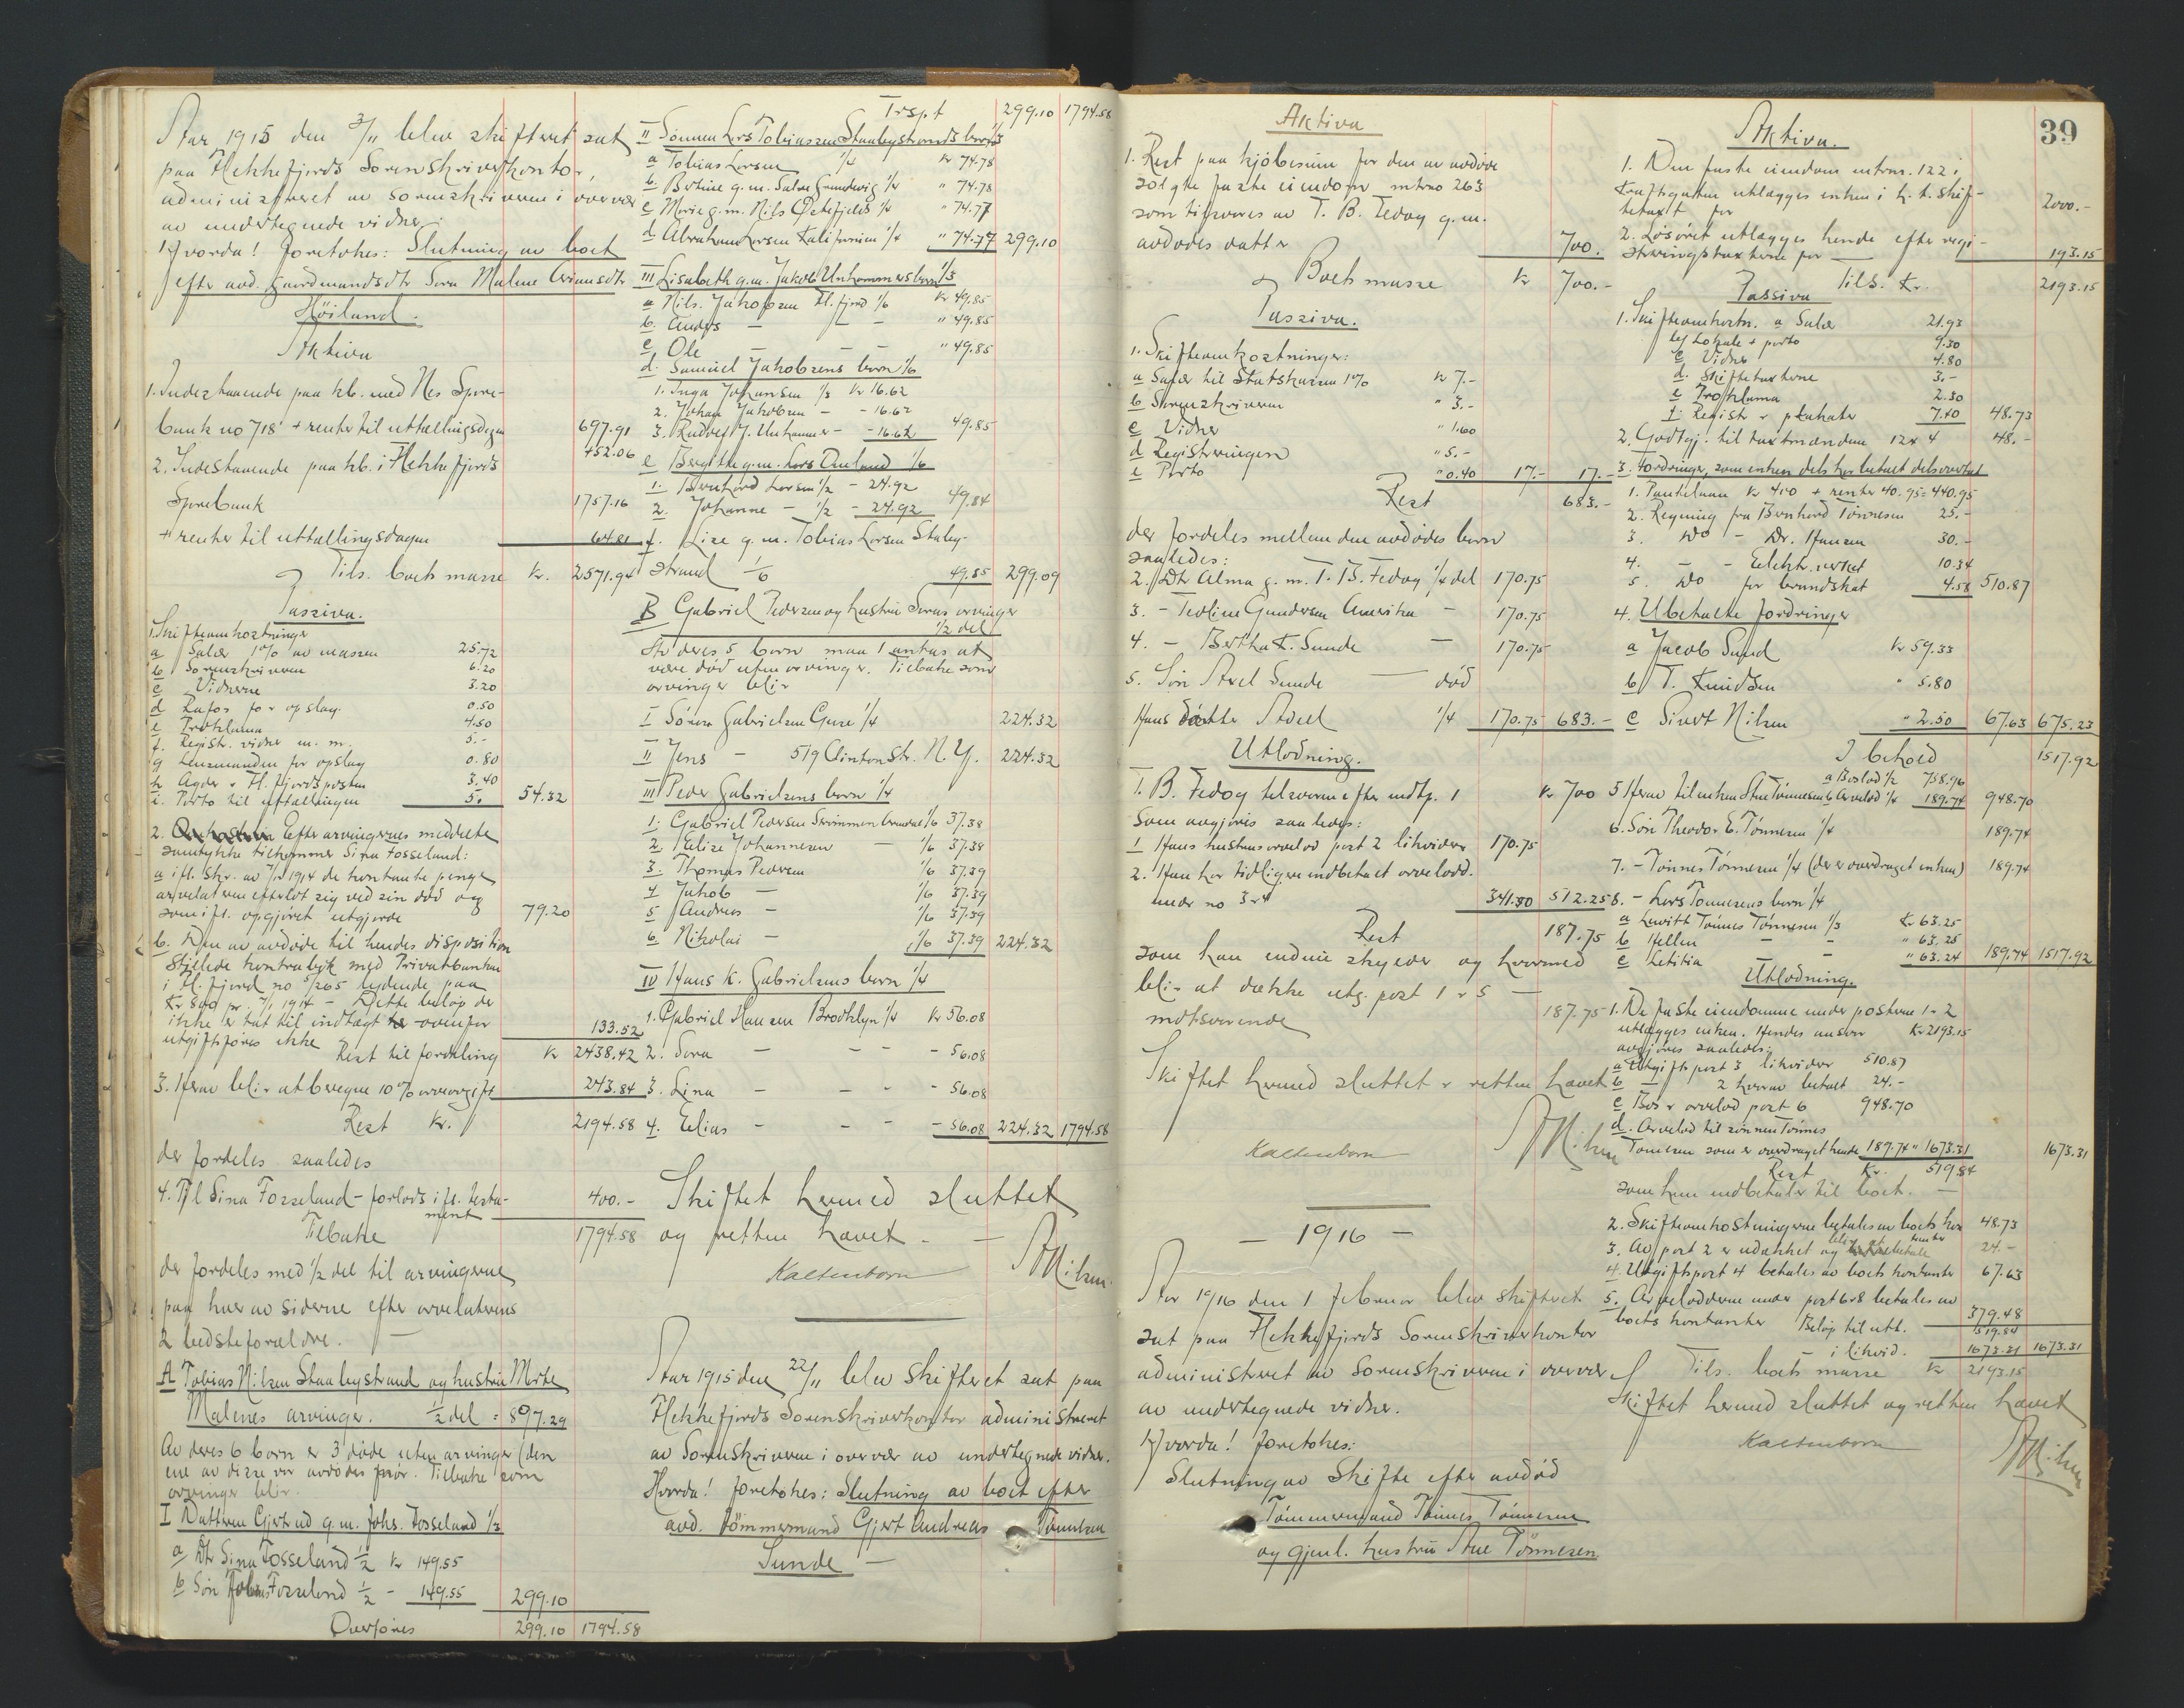 Aar 1915 den 3/11 blev skifteret sat
paa Flekkefjords Sorenskriverkontor,
administreret av sorenskriveren i overvær
av undertegnede vidner.
Hvorda! foretokes: Slutning av boet
efter avd. gaardmandsdtr Sara Malene
Høiland.
Aktiva
1. Indestaaende paa kb. med Nes Spare-
bank no 718 + renter til uttællingsdagen 697.91
+52.06
2. Indestaaende paa kb. i Flekkefjords
Sparebank 1757.16
+ renter til uttællingsdagen 64.81
Tils. boets masse Kr. 2571.94
Passiva.
1. Skifteomkostninger
a Salær 1% av massen 25.72
b Sorenskriveren 6.20
c Vidnerne 3.20
d for opslag 0.50
e Proklama 4.50
f. Registr. vidner m. m. 5.-
g Lensmanden for opslag 0.80
h Agder & Fl.fjordsposten 3.40
i. Porto til uttællingen 5. 54.32
2. Efter arvingernes meddelte
samtykke tilkommer Sina Fosseland:
a ifl. skr. av 1914 de kontante penge
arvelateren efterlot sig ved sin død og
som ifl. opgjøret utgjorde 79.20
b. Den av avdøde til hendes disposition
stillede kontrabok med Privatbanken
i Fl.fjord no 5265 lydende paa
Kr 800 pr. 7/1 1914 - Dette beløp der
ikke er tat til indtægt ovenfor
utgiftsføres ikke 133.52
Rest til fordeling Kr 2438.42
3. Herav blir at beregne 10% arveavgift 243.84
Rest Kr. 2194.58
der fordeles saaledes
4. Til Sina Fosseland - forlods ifl. testa-
ment 400.-
Tilbake 1794.58
der fordeles med 1/2 del til arvingerne
paa hver av siderne efter arvelaterens
2 bedsteforældre.
A Tobias Nilsen Staalegstrand og hustru Marte
Malenes arvinger. 1/2 del = 897.29
Av deres 6 born er 3 døde uten arvinger (den
ene av disse var avdødes far. Tilbake som
arvinger blir.
I Datteren Gjertrud g.m. Johs. Fosseland 1/3
a Dtr Sina Fosseland 1/2 Kr 149.55
b Søn Tobias Fosseland 1/2 - 149.55 299.10
Overføres 299.10 1794.58
Trsp.t 299.10 1794.58
II Sønnen Lars Tobiassen Staalegstrands born 1/3
a Tobias Larsen 1/4 Kr 74.78
b. Bertine g.m. Salve Grundevig 1/4 " 74.78
c Marie g.m. Nils Østefjeld 1/4 " 74.77
d. Abraham Larsen Kalifornien 1/4 " 74.77 299.10
III Lisabeth g.m. Jakob Unhammers born 1/3
a Nils Jakobsen Fl.fjord 1/6 Kr 49.85
b. Anders - - - " 49.85
c Ole - - - " 49.85
d. Samuel Jakobsens born 1/6
1. Inga Johansen 1/3 Kr 16.62
2. Johan Jakobsen - - 16.62
3. Rudolf J. Unhammer - - 16.62 49.85
e Bergitte g.m. Lars Omland 1/6
1. Bernhard Larsen 1/2 - 24.92
2. Johanne - 1/2 - 24.92 49.84
f. Lise g.m. Tobias Larsen Staleg-
strand 1/6 49.85 299.09
B Gabriel Pedersen og hustru Saras arvinger
1/2 del
Av deres 5 born maa 1 antas at
være død uten arvinger. Tilbake som
arvinger blir
I Søren Gabrielsen 1/4 224.32
II Jens - 519 Clinton Str. N.Y. 224.32
III Peder Gabrielsens born 1/4
1. Gabriel Pedersen 1/6 37.38
2. Elise Johannesen - 1/6 37.38
3. Thomas Pedersen 1/6 37.39
4 Jakob - 1/6 37.39
5 Andreas - 1/6 37.39
6 Nikolai - 1/6 37.39 224.32
IV Hans K. Gabrielsens born 1/4
1. Gabriel Hansen Brooklyn 1/4 Kr 56.08
2. Sara - - - - 56.08
3. Lina - - - - 56.08
4. Elias - - - - 56.08 224.32 1794.58
Skiftet hermed sluttet
og retten hævet. -
Kaltenborn
ANilsen.
Aar 1915 den 22/11 blev skifteret sat paa
Flekkefjords Sorenskriverkontor administreret
av Sorenskriveren i overvær av undertegnede vidner.
Hvorda! foretokes: Slutning av boet efter
avd. Tømmermand Gjert Andreas Tønnesen
Sunde -
Aktiva
1. Rest paa kjøbesum for den av avdøde
solgte faste eiendom mtrno 263
som tilsvares av T. B. Fedog g.m.
avdødes datter 700.
Boets masse Kr 700.-
Passiva.
1. Skifteomkostninger:
a Salær til Statskassen 1% Kr 7.-
b Sorenskriveren " 3.-
c Vidner " 1.60
d Registreringen " 5.-
e Porto " 0.40 17.- 17.-
Rest 683.-
der fordeles mellem den avdødes born
saaledes:
2. Dtr Alma g.m. T. B. Fedog 1/4 del 170.75
3. - Teoline Gundersen Amerika - 170.75
4. - Bertha K. Sunde - 170.75
5. Søn Axel Sunde - død
Hans datter 1/4 170.75 683.-
Utlodning.
T. B. Fedog tilsvarer efter indtp. 1 Kr 700
Som avgjøres saaledes:
1 Hans hustrus arvelod post 2 likvideres 170.75
2. Han har tidligere indbetalt arvelodd.
under no 3&4 341.50 512.25
Rest 187.75
som han endnu skylder og hvormed
blir at dække utg. post 1 & 5 -
motsvarende 187.75
Skiftet hermed sluttet & retten hævet
Kaltenborn
ANilsen
- 1916 -
Aar 1916 den 1 februar blev skifteret
sat paa Flekkefjords Sorenskriverkontor
administreret av sorenskriveren i overvær
av undertegnede vidner.
Hvorda! foretokes:
Slutning av Skifte efter avdød
Tømmermand Tønnes Tønnesen
og gjenl. hustru Ane Tønnesen.
39
Aktiva.
1. Den faste eiendom mtrnr. 122 i
utlægges enken i h. t. skif-
tetakst for 2000.-
2. Løsøret utlægges hende efter regi-
streringstaksterne for 193.15
Tils. Kr. 2193.15
Passiva
1. Skifteomkostn. a Salær 21.93
b Lokale + porto 9.30
c Vidner 4.80
d. Skiftetaksterne 3.-
e Proklama 2.30
f Registr & plakater 7.40 48.73
2. Godtgj. til takstmændene 12x4 48.-
3. Fordringer, som enken dels har betalt dels overtat
1. Pantelaan Kr 400 + renter 40.95 = 440.95
2. Regning fra Bernhard Tønnesen 25.-
3. Do - Dr. Hansen 30.-
4. - - Elektr. verket 10.34
5. Do for brandskat 4.58 510.87
4. Ubetalte fordringer
a Jacob Sund Kr 59.33
b T. Knudsen " 5.80
c Sivert Nilsen " 2.50 67.63 675.23
I behold 1517.92
5 Herav til enken Ane Tønnesen a Boslod 1/2 758.96
b Arvelod 1/4 189.74 948.70
6. Søn Theodor E. Tønnesen 1/4 189.74
7. - Tønnes Tønnesen 1/4 (der er overdraget enken) 189.74
8. - Lars Tønnesens born 1/4
a Tønnes Tønnesen 1/3 Kr 63.25
b Hellen - - " 63.25
c Letitia - " 63.24 189.74 1517.92
Utlodning.
1. De faste eiendomme under posterne 1-2
utlægges enken. Hendes ansvar Kr 2193.15
avgjøres saaledes:
a Utgiftspost 3 likvideres 510.87
b - 2 hvorav betalt 24.-
c Bos & arvelod post 6 948.70
d. Arvelod til sønnen Tønnes
Tønnesen som er overdraget hende 189.74 " 1673.31 1673.31
Rest Kr. 519.84
som hun indbetaler til boet. -
2. Skifteomkostningerne betales av boets kon 48.73
3. Av post 2 er udækket og blir at betale 24.-
4. Utgiftspost 4 betales av boets kontanter 67.63
5. Arvelodderne under post 6&8 betales av
boets kontanter 379.48
Beløp til utt. 519.84
i likvid. 1673.31 1673.31
Tils. boets masse Kr 2193.15
Skiftet hermed sluttet og retten hævet
Kaltenborn
ANilsen